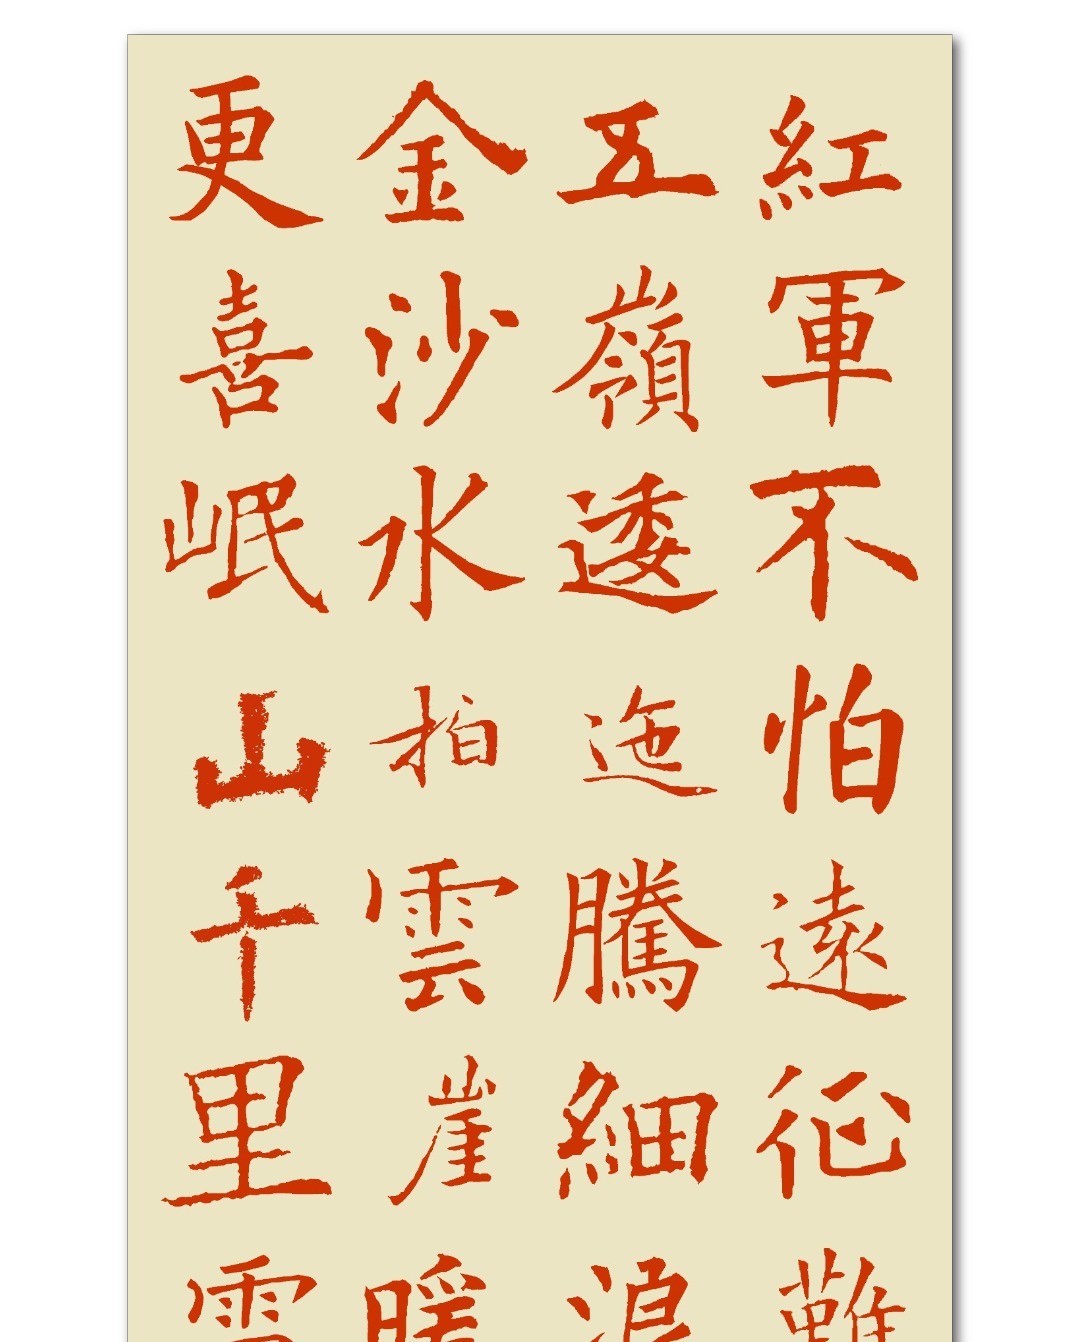 紅軍不怕遠征難
五嶺逶迤騰細浪
金沙水拍雲崖暖
更喜岷山千里雪